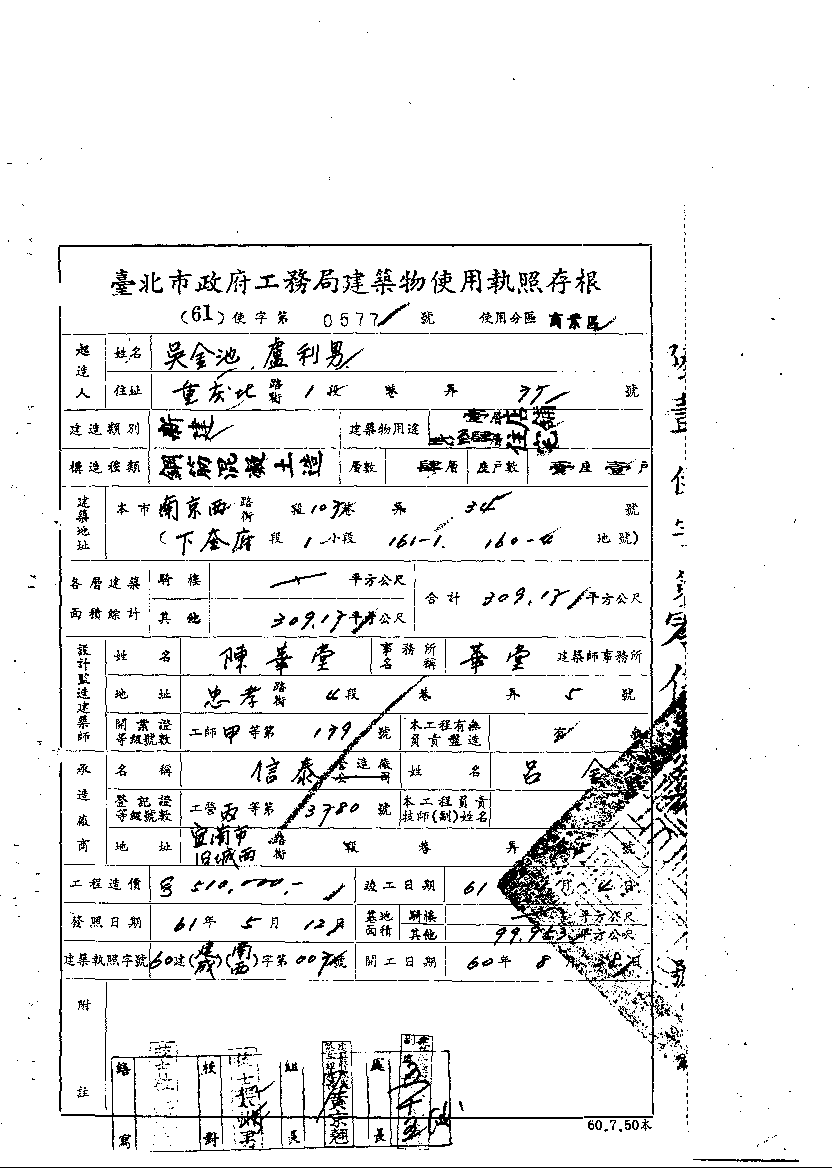 臺北市政府工務局建築物使用執照存根
(61)使字第 0577 號 使用分區 商業區
起造人 姓名 吳金池 盧利男
住址 重慶北路街 1段 巷 弄 35 號
建造類別 新建 建築物用途 壹層店舖 住宅
構造種類 鋼筋混凝土造 層數 肆層 座戶數 壹座壹戶
建築地址 本市 南京西路街 段 103巷 弄 34 號
(下奎府段 1小段 161-1. 160-4 地號)
各層建築面積綜計 騎樓 平方公尺 合計 309.17 平方公尺
其他 309.17 平方公尺
設計監造建築師 姓名 陳華堂 事務所名稱 華堂 建築師事務所
地址 忠孝路街 4段 巷 弄 5 號
開業證等級號數 工師甲等第 179 號 本工程有無負責監造
承造廠商 名稱 信泰 營造廠公司 姓名 呂金
登記證等級號數 工營丙等第 3780 號 本工程負責技師(副)姓名
地址 宜蘭市旧城西路街 段 巷 弄 號
工程造價 510,000.- 竣工日期 61 月 4日
發照日期 61年 5月 12日 基地面積 騎樓 平方公尺
其他 99.953 平方公尺
建築執照字號 60建(建成)(南西)字第 007 號 開工日期 60年 8月 日
附註
繕寫 校對 組長 處長
黃京翹
60.7.50本